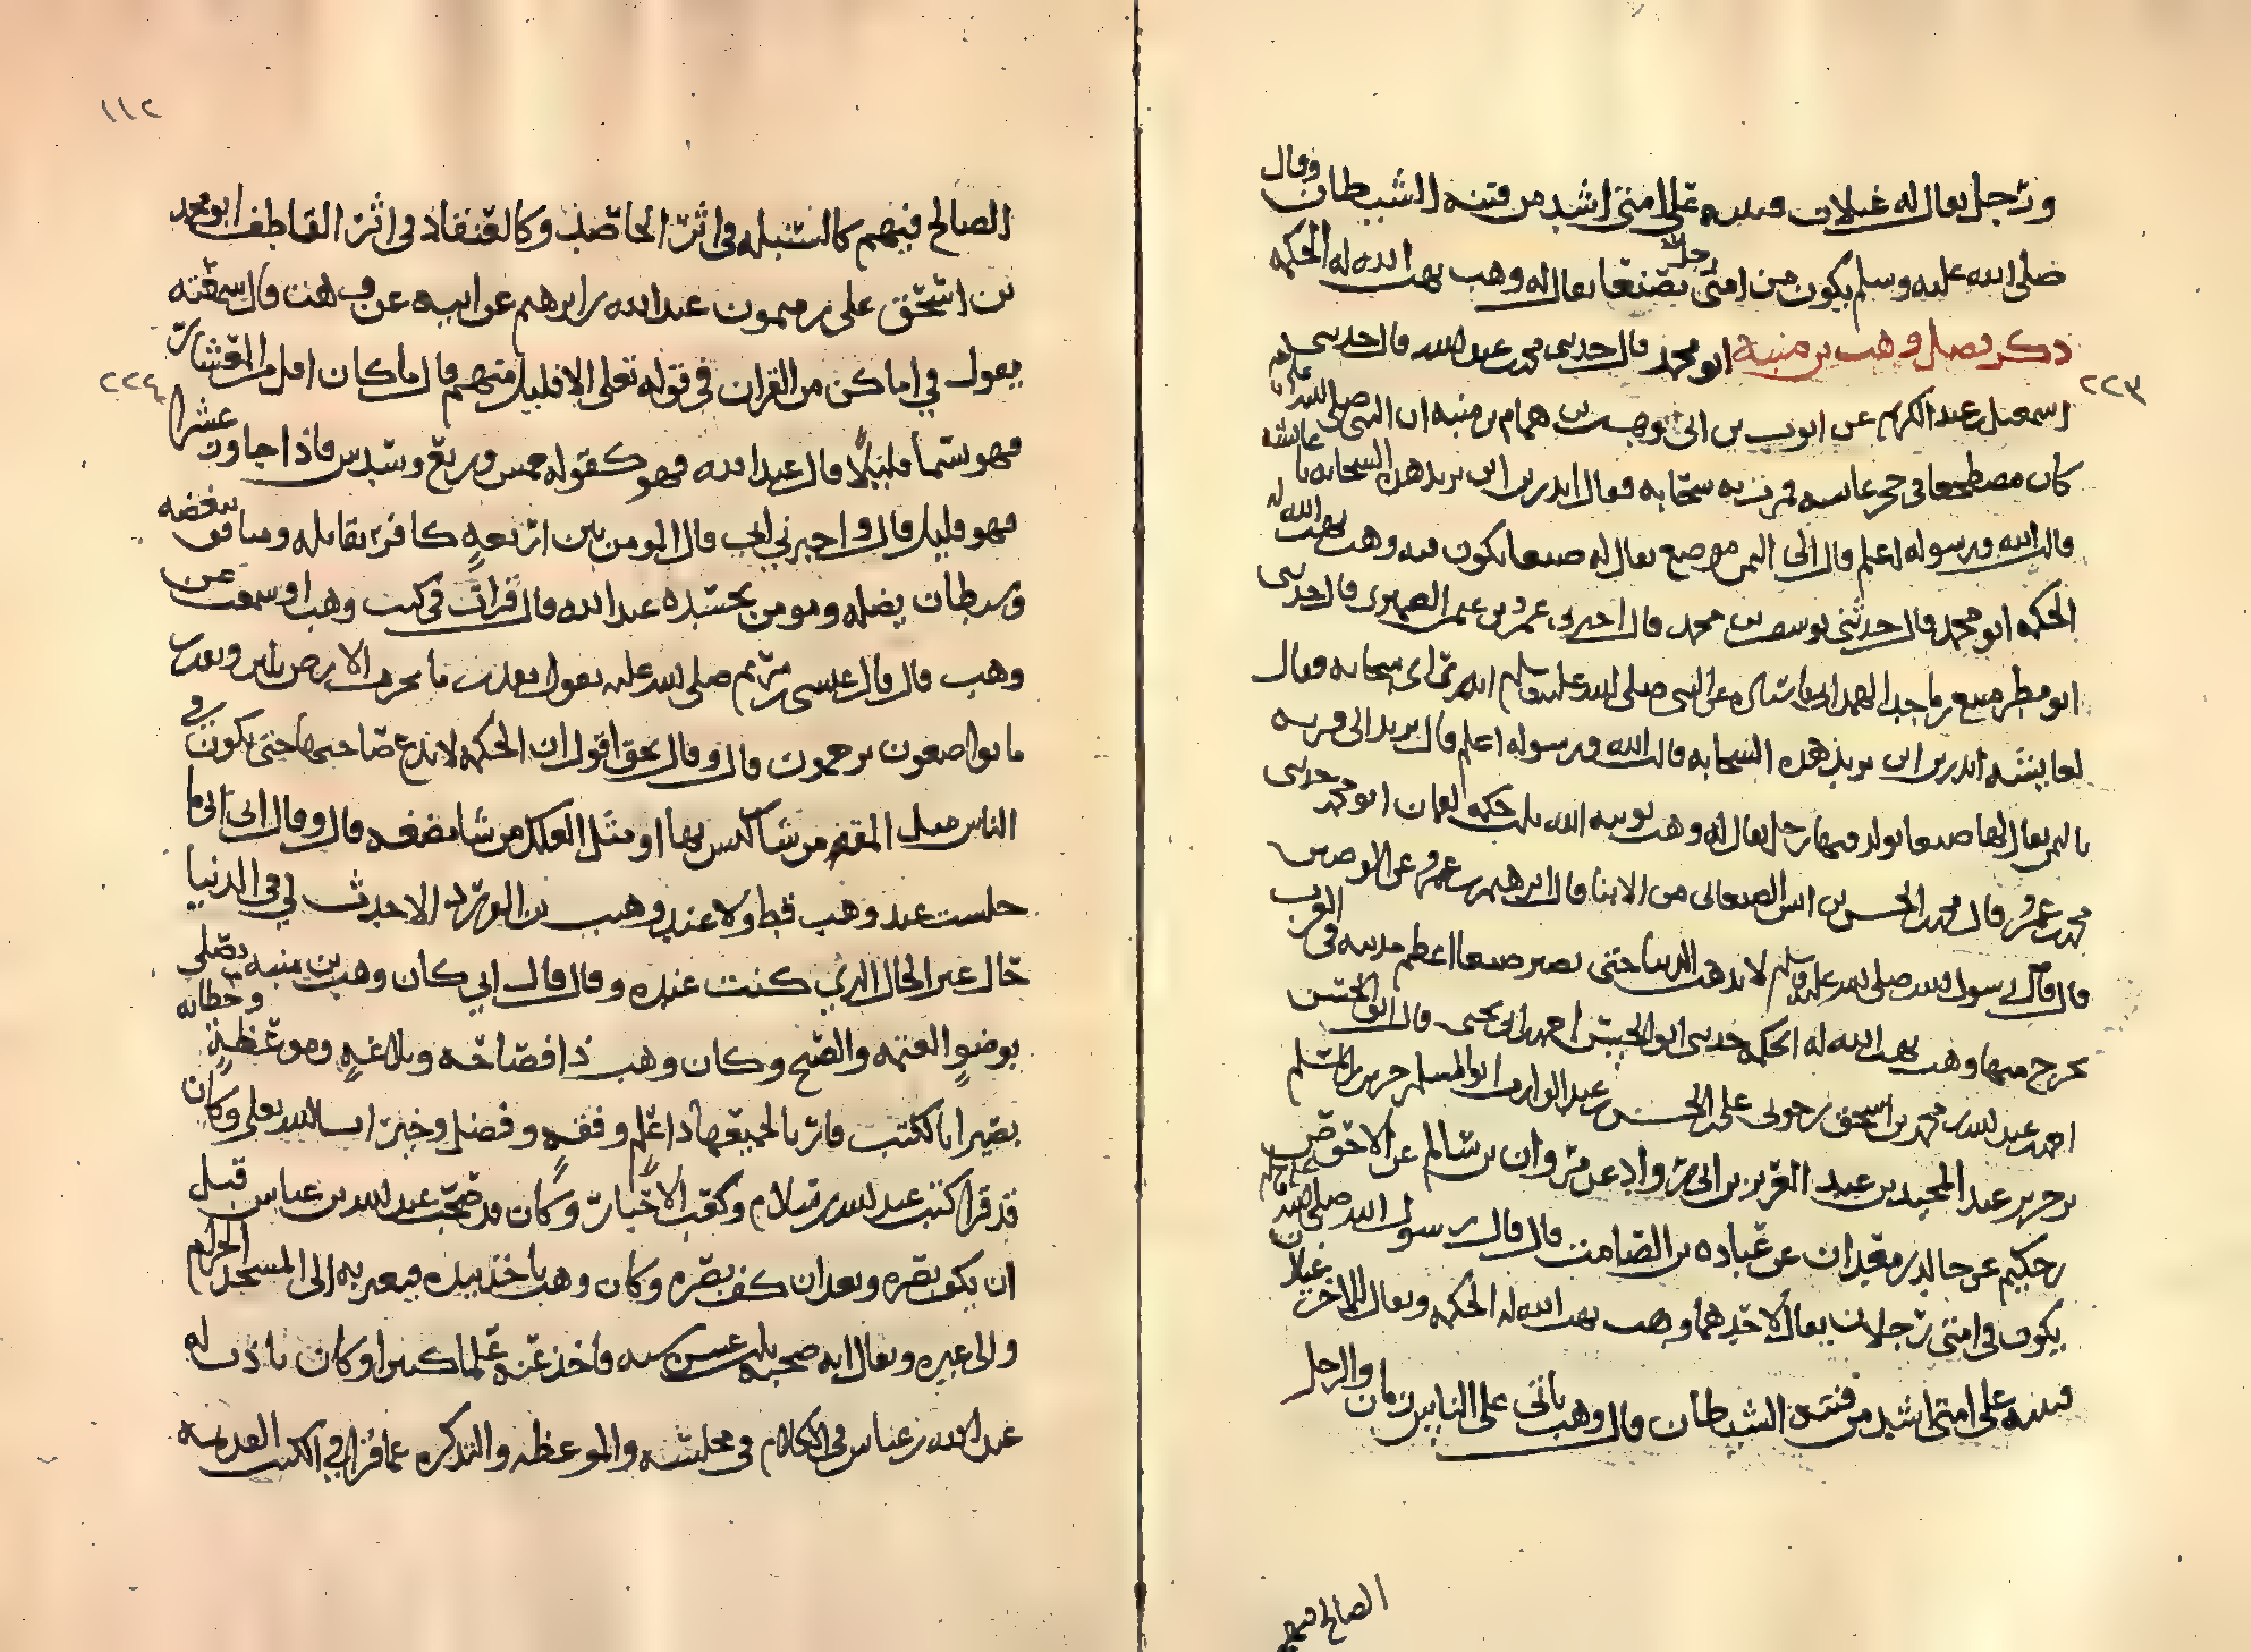 ورجل يقال له غيلان فتنته على امتي اشد من فتنة الشيطان وقال
صلى الله عليه وسلم يكون من امتي رجل بصنعا يقال له وهب يهب الله له الحكمة
ذكر فضل وهب بن منبه ابو محمد قال حدثني محمد بن عبد الله قال حدثني
٢٢٣
اسمعيل بن عبد الكريم عن ايوب بن ابي وهب بن همام بن منبه ان النبي صلى الله عليه وسلم
كان مضطجعا في حجر عايشه فمرت به سحابه فقال اتدرين اين تريد هذه السحابه يا عايشه
قالت الله ورسوله اعلم قال الى اليمن موضع يقال له صنعا يكون فيه وهب يهب الله له
الحكمه ابو محمد قال حدثني يوسف بن محمد قال اخبرني عمرو بن قال حدثني
ابو مطر عن النبي صلى الله عليه وسلم انه راى سحابه فقال
لعايشه اتدرين اين تريد هذه السحابه قالت الله ورسوله اعلم قال تريد الى قريه
باليمن يقال لها صنعا يولد فيها رجل يقال له وهب يوتيه الله حكمه لقمان ابو محمد حدثني
محمد بن عمرو قال محمد بن الحسن بن انس الصنعاني من الابنا قال ابرهيم بن عمرو عن الوضين
قال قال رسول الله صلى الله عليه وسلم لا تذهب الدنيا حتى تصير صنعا اعظم مدينه في العرب
يخرج منها وهب يهب الله له الحكمه حدثني ابو الحسن احمد بن يحيى قال ابو الحسن
احمد بن عبد الله بن محمد بن اسحق علي بن الحسن بن عبد الوارث ابو المسلم حريز بن المسلم
بن حريز عبد المجيد بن عبد العزيز بن ابي رواد عن مروان بن سالم عن الاحوص
بن حكيم عن خالد بن معدان عن عباده بن الصامت قال قال رسول الله صلى الله عليه وسلم
يكون في امتي رجلان يقال لاحدهما وهب يهب الله له الحكمه ويقال للاخر غيلان
فتنته على امتي اشد من فتنة الشيطان قال وهب ياتي على الناس زمان والرجل
الصالح فيهم
١١٢
الصالح فيهم كالسنبله في اثر الحاصد وكالعنقاد في اثر القاطف ابو محمد
بن اسحق علي بن ميمون عبد الله بن ابرهيم عن ابيه عن وهب قال سمعته
يقول في اماكن من القران في قوله تعلى الا قليل منهم قال ما كان اقل من العشرة
٢٢٤
فهو يسما قليلا قال عبد الله فهو كقوله خمس وربع وسدس فاذا جاوز عشرا
فهو قليل قال واخبرني ابي قال المومن بين اربعةٍ كافر يقاتله ومنافق يبغضه
وشيطان يضله ومومن يحسده عبد الله قال قرات في كتب وهب او سمعت عن
وهب قال قال عيسى بن مريم صلى الله عليه يقول بقدر ما تحرث الارض تلين وبقدر
ما تواضعون ترحمون قال وقال بحق اقول ان الحكمه لا تدع صاحبها حتى يكون في
الناس مثل من شا او مثل العلك من شا مضغه قال وقال ابي اني ما
جلست عند وهب قط ولا عند وهب بن الورد الا حدث لي في الدنيا
حال غير الحال الذي كنت عنده وقال قال ابي كان وهب بن منبه يصلي
بوضو العتمه والصبح وكان وهب ذا فصاحه وبلاغه وموعظةٍ وخطابه
بصيرا بالكتب قارئا لجميعها ذا علم وفقه وفضل وخير ان شاالله تعلى وكان
قد قرا كتب عبد الله بن سلام وكعب الاحبار وكان قد صحب عبد الله بن عباس قبل
ان يكف بصره وبعد ان كف بصره وكان وهب ياخذ بيده فيعبر به الى المسجد الحرام
والى غيره ويقال انه صحبه ثلث عشره سنه فاخذ عنه علما كثيرا وكان ياذن له
عبد الله بن عباس في الكلام في مجلسه والموعظه والتذكره مما قرا في الكتب القديمه